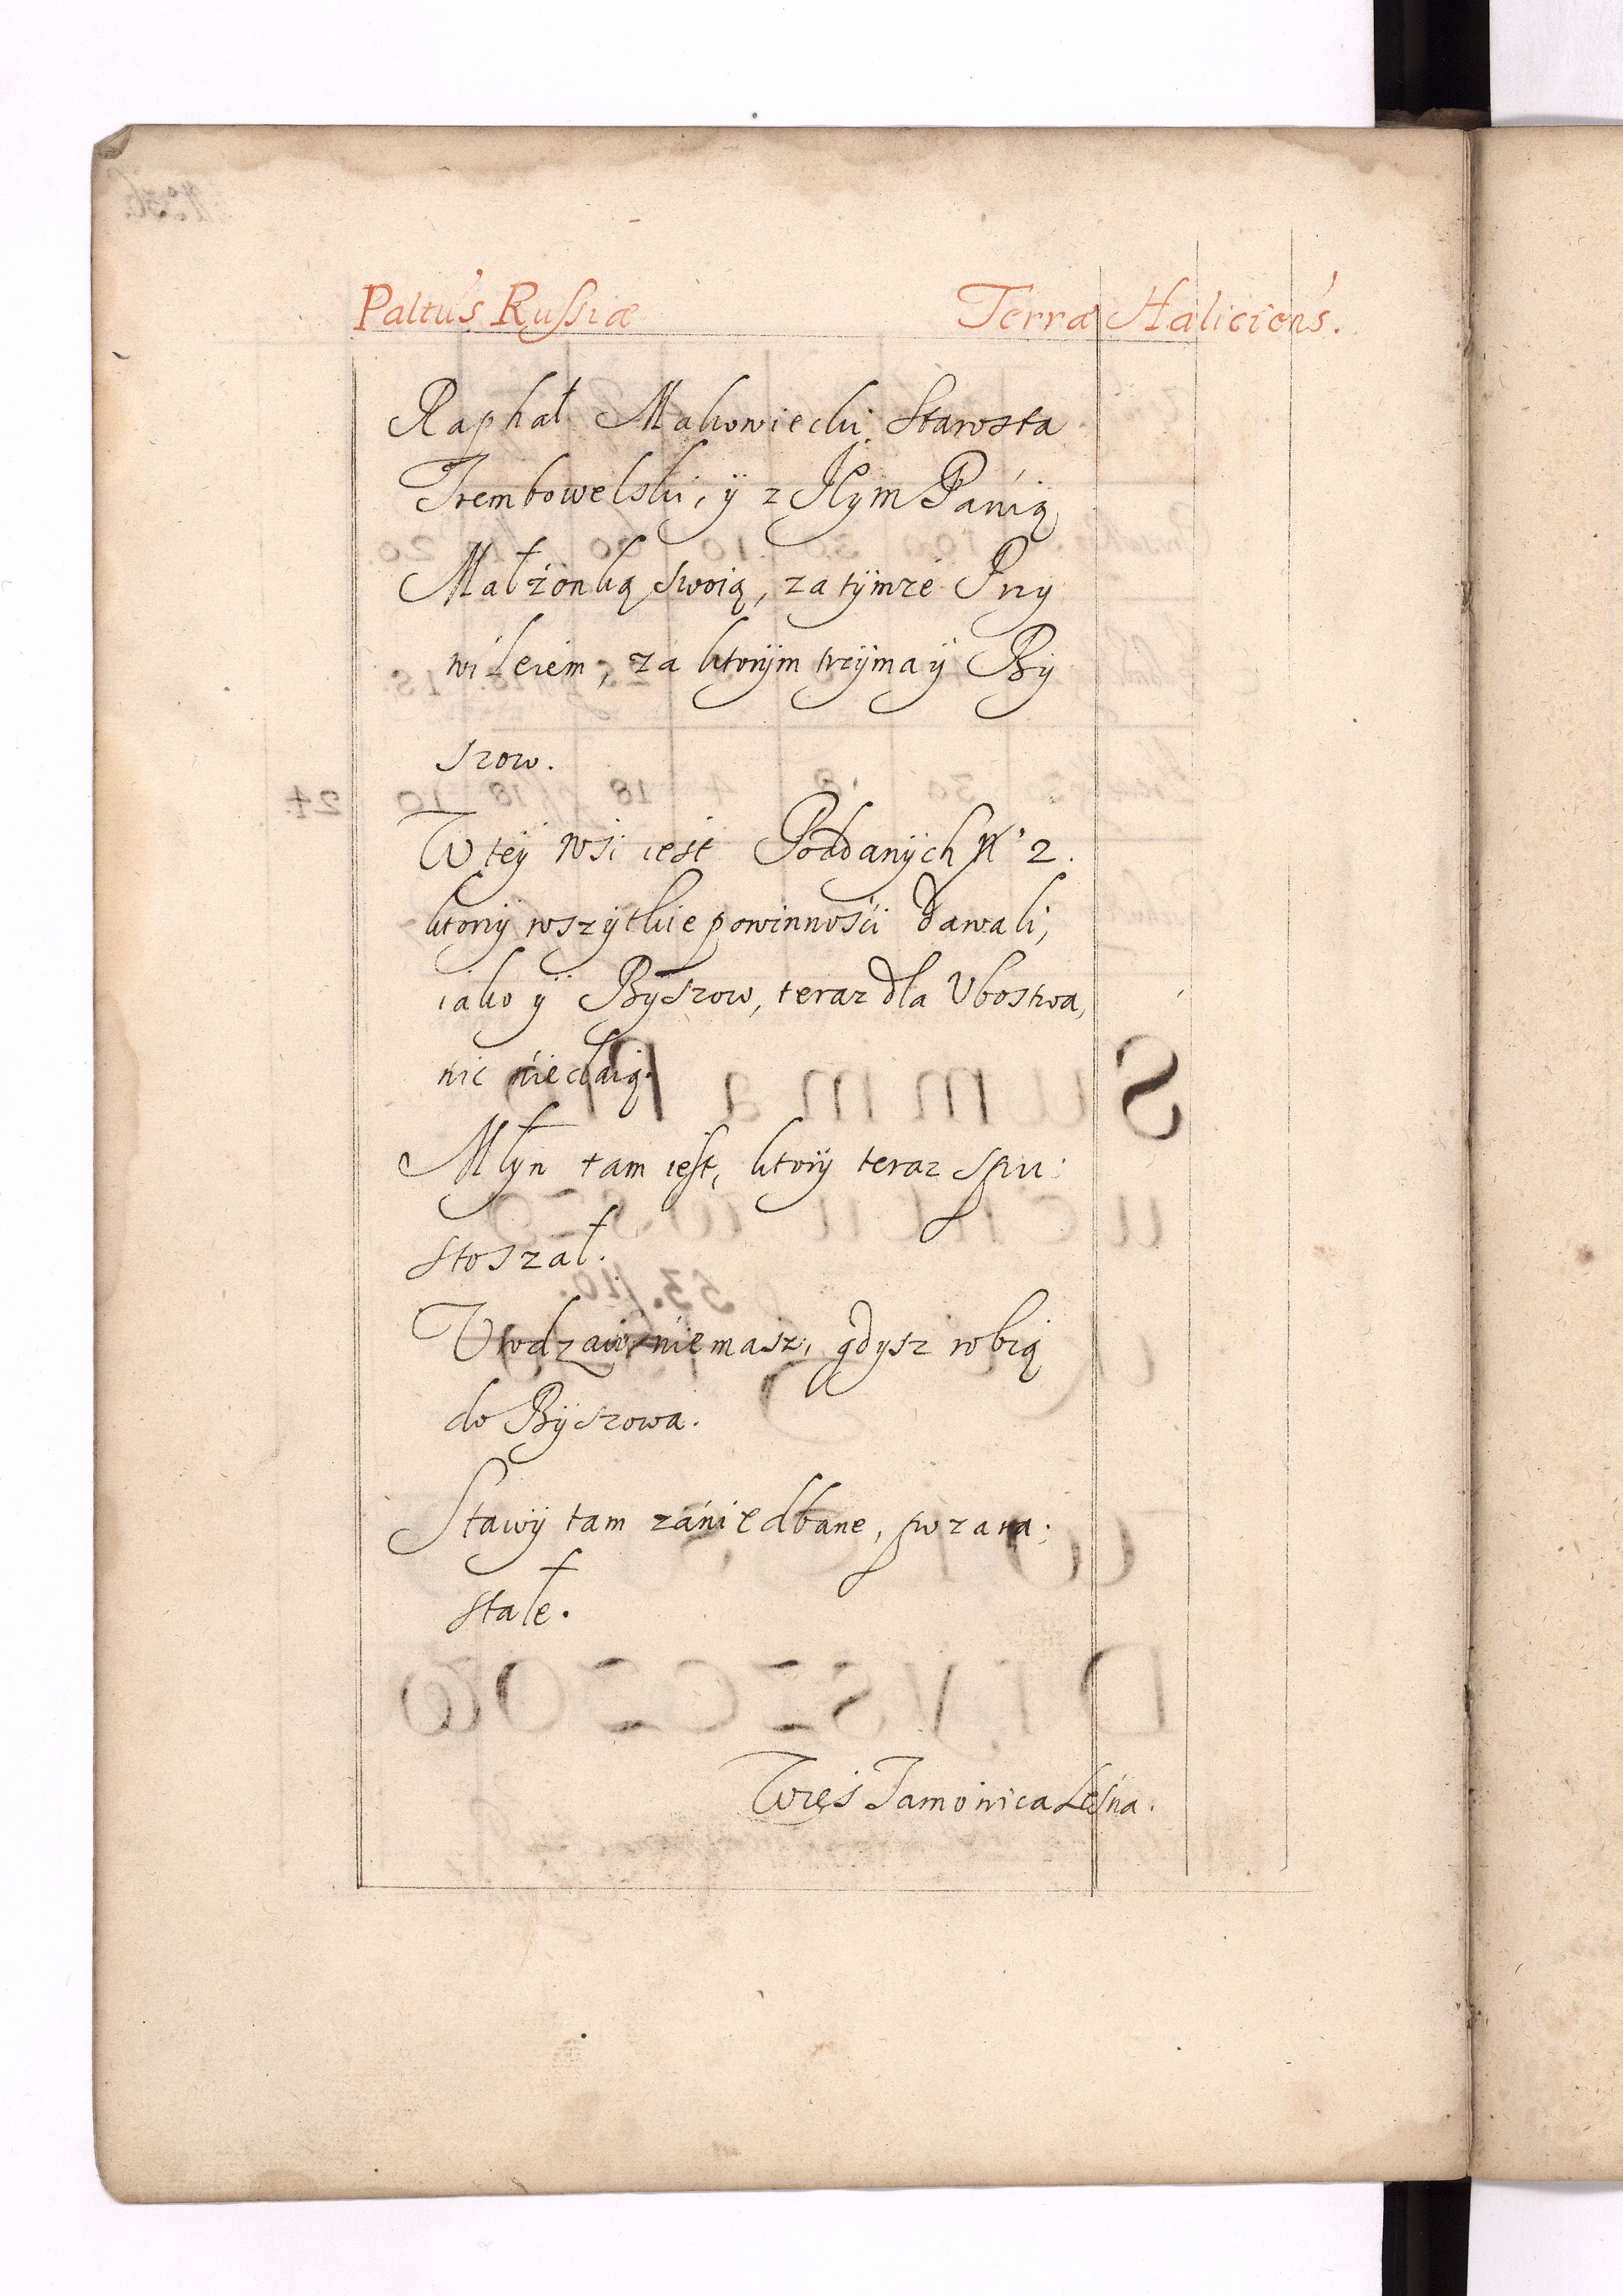 Paltus Russiæ Terræ Haliciens.
Raphał Makowiecki Starosta
Trembowelski, ÿ z JEym Pańią
Małżonką swoią, za tÿmże Przy
wileiem, za ktorÿm trzÿma ÿ Bÿ
szow.
W teÿ wsi iest Poddanÿch N° 2.
ktorzÿ wszÿtkie powinnośći dawali,
iako ÿ Bÿszow, teraz dla Vbostwa,
nic niedaią.
Młÿn tam iest, ktorÿ teraz spu:
stoszał.
Vrodzaiu niemasz, gdysz robią
do Bÿszowa.
Stawÿ tam zaniedbane, pozara:
stałe.
Wręs Jamonica Leśna.